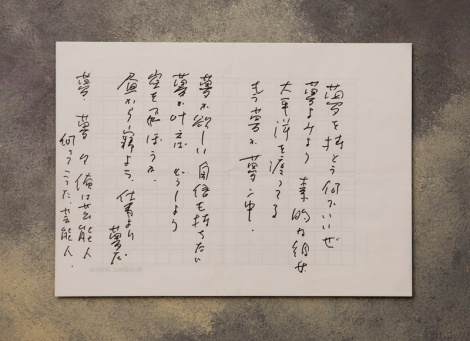 夢を持とう 何かいいぜ
夢よみよう 素的な
太平洋を渡ってる
も夢が 夢中。
夢が欲しい 自信を持ちたい
夢が叶えば どうしよう
空を飛ぼうか、
昼から寝よう、仕事より
夢だ
夢、夢の 俺は芸能人
何てこった、芸能人、